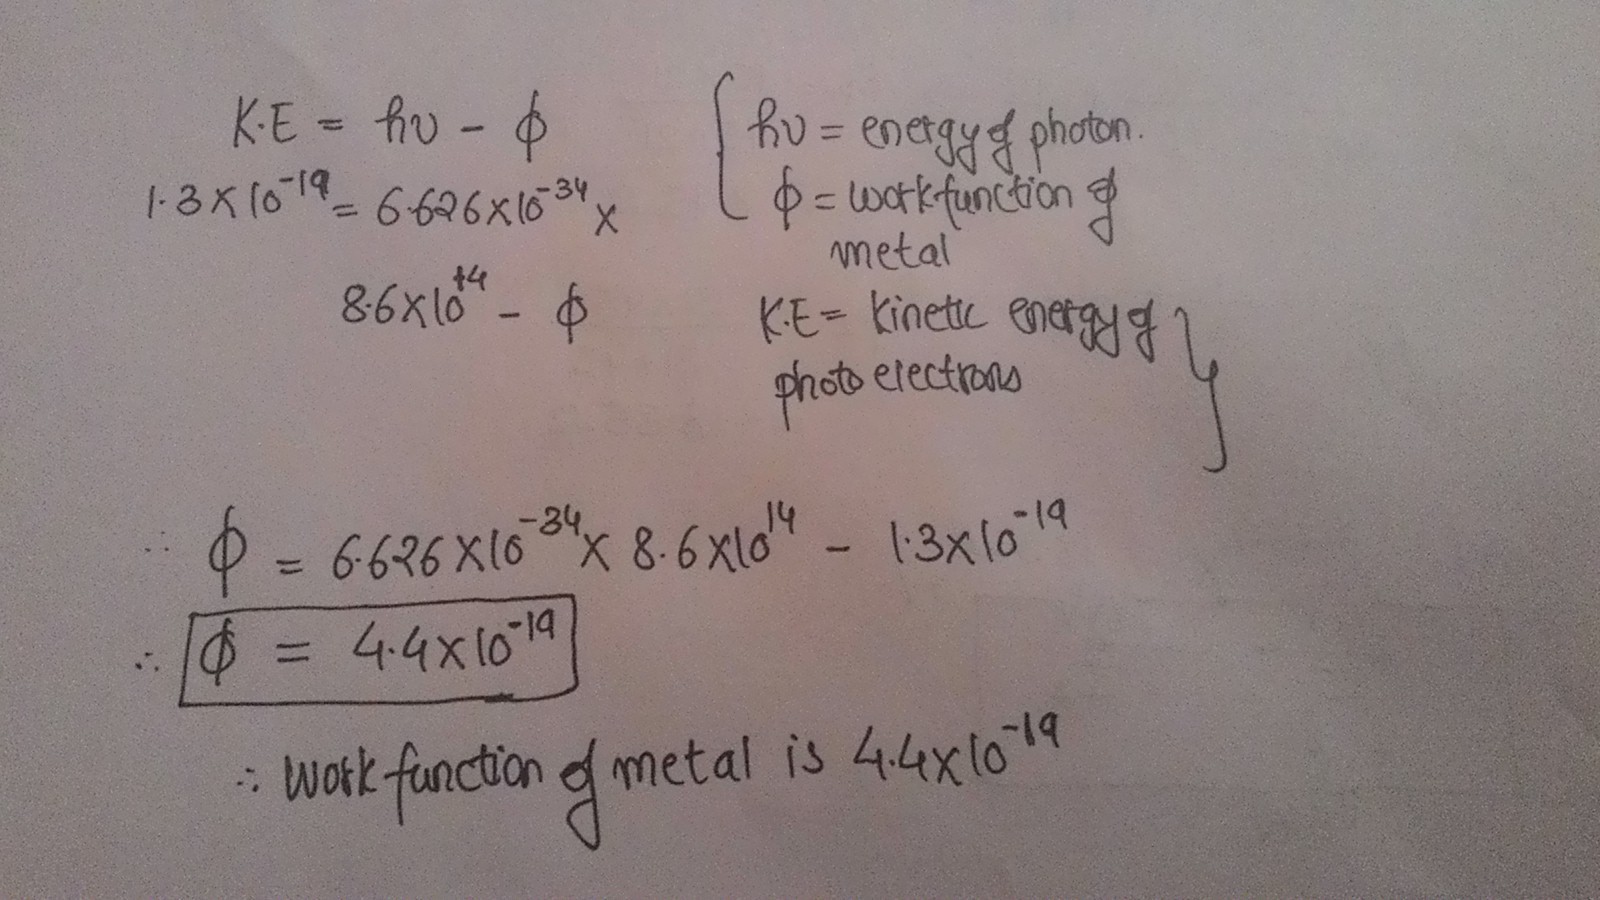 K.E = hν - ϕ
1.3×10⁻¹⁹ = 6.626×10⁻³⁴ ×
8.6×10⁺⁴ - ϕ
{ hν = energy of photon.
ϕ = work function of
metal
K.E = Kinetic energy of
photo electrons }
ϕ = 6.626×10⁻³⁴ × 8.6×10¹⁴ - 1.3×10⁻¹⁹
∴ ϕ = 4.4×10⁻¹⁹
∴ work function of metal is 4.4×10⁻¹⁹